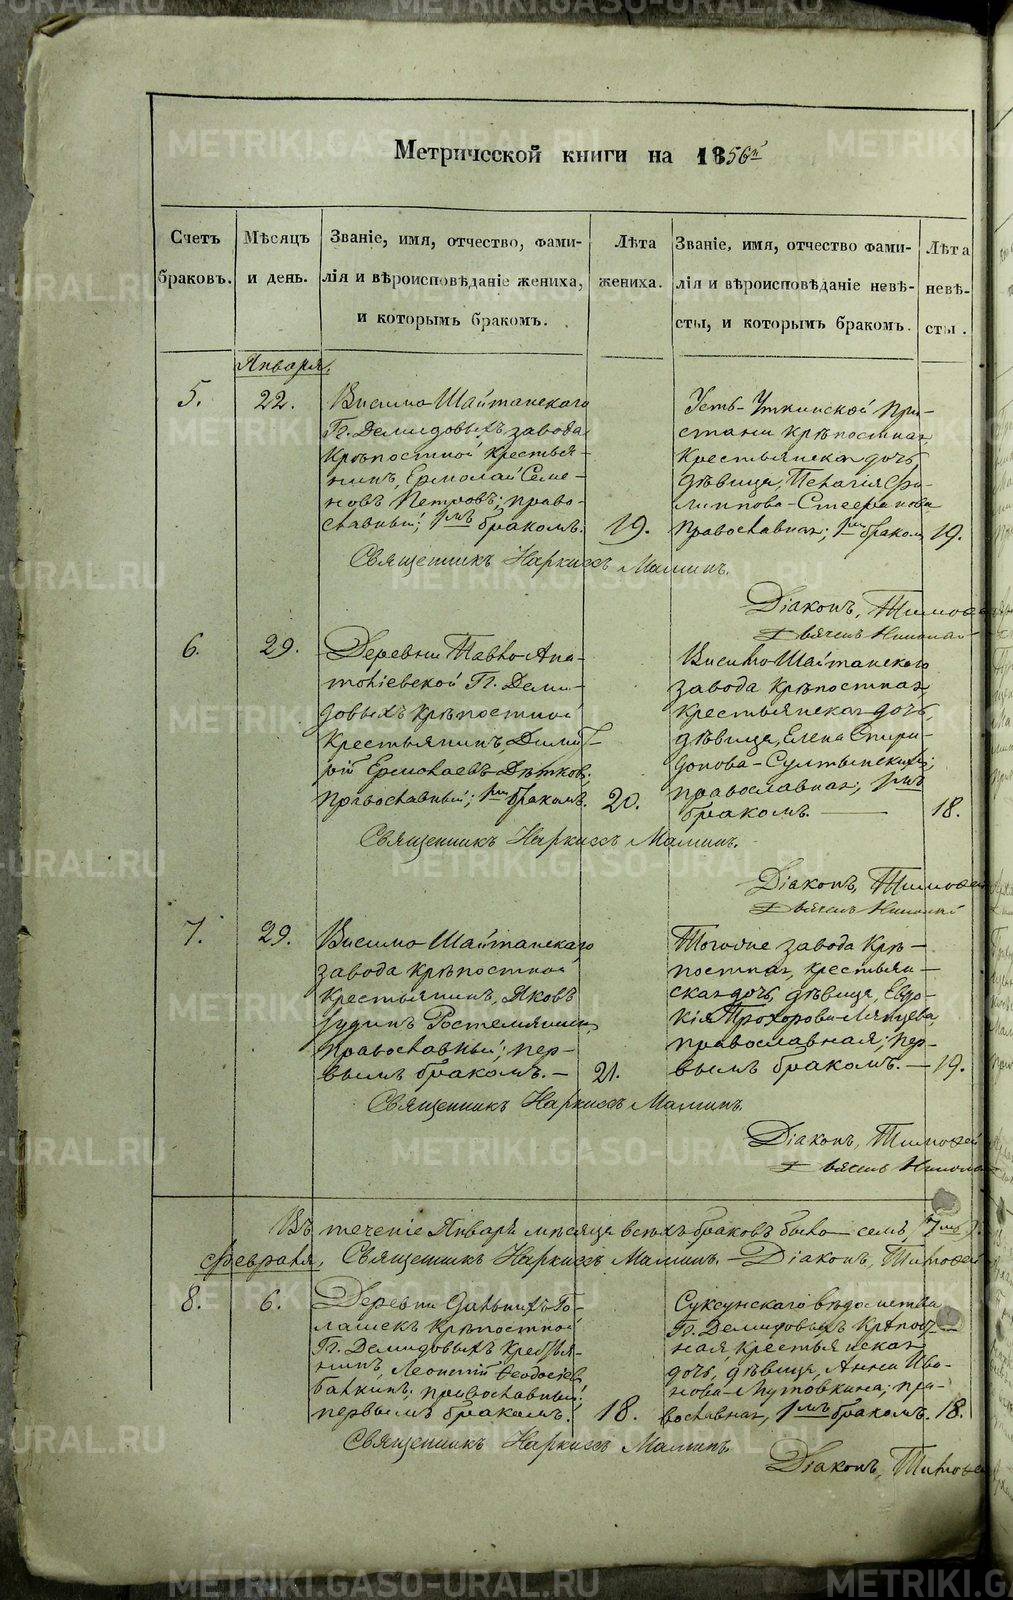 Метрической книги на 1856й
Счетъ браковъ.
Мѣсяцъ и день.
Званіе, имя, отчество, фами-
лія и вѣроисповѣданіе жениха,
и которымъ бракомъ.
Лѣта
жениха.
Званіе, имя, отчество фами-
лія и вѣроисповѣданіе невѣ-
сты, и которымъ бракомъ.
Лѣта
невѣ-
сты.
Января,
5.
22.
Висимо Шайтанскаго
Гг. Демидовыхъ завода
крѣпостной крестья-
нинъ, Ермолай Семе-
новъ Петровъ; право-
славный; 1мъ бракомъ.
19.
Усть-Уткинской при-
стани крѣпостная
крестьянская дочь,
дѣвица, Пелагія Фи-
липпова
православная; 1мъ бракомъ
19.
Священникъ Наркиссъ Маминъ.
Діаконъ, Тимофей
6.
29.
Деревни Павло Ана-
толіевской Гг. Деми-
довыхъ крѣпостной
крестьянинъ, Димит-
рій Ермолаевъ
православный; 1мъ бракомъ.
20.
Висимо Шайтанскаго
завода крѣпостная
крестьянская дочь,
дѣвица, Елена Спири-
донова
православная; 1мъ
бракомъ.
18.
Священникъ Наркиссъ Маминъ.
Діаконъ, Тимофей
7.
29.
Висимо Шайтанскаго
завода крѣпостной
крестьянинъ, Яковъ
Іудинъ
православный; пер-
вымъ бракомъ. —
21.
Тогоже завода крѣ-
постная, крестьян-
ская дочь, дѣвица, Евдо-
кія Прохорова
православная; пер-
вымъ бракомъ. —
19.
Священникъ Наркиссъ Маминъ.
Діаконъ, Тимофей
Въ теченіе Января мѣсяца всѣхъ браковъ было — семь, 7мь
Февраля,
Священникъ Наркиссъ Маминъ. — Діаконъ, Тимофей
8.
6.
Деревни Галашекъ крѣпостной
Гг. Демидовыхъ крестья-
нинъ, Леонтій Ѳеодосіев
православный;
первымъ бракомъ.
18.
Суксунскаго вѣдомства
Гг. Демидовыхъ крѣпост-
ная, крестьянская
дочь, дѣвица, Анна Ива-
нова пра-
вославная, 1мъ бракомъ.
18.
Священникъ Наркиссъ Маминъ
Діаконъ, Тимофей
METRIKI.GASO-URAL.RU